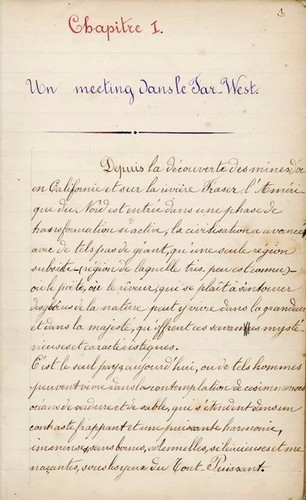 Chapitre I.
Un meeting dans le Far-West.
Depuis la découverte des mines d'or
en Californie et sur la rivière Fraser l'Améri
que du Nord est entrée dans une phase de
transformation si active, la civilisation a avancé
avec de tels pas de géant, qu'une seule région
subsiste (région de laquelle très peu est connue)
où le poëte, où le rêveur, qui se plaît à s'entourer
des gloires de la nature peut y vivre dans la grandeur
et dans la majesté, qu'offrent ces savanes mysté
rieuses et caractéristiques.
C'est le seul pays aujourd'hui, où de tels hommes
peuvent vivre dans la contemplation de ces immenses
océans de verdure et de sable, qui s'étendent dans en
contraste frappant et une puissante harmonie,
immenses, sans bornes, solennelles, silencieuses et me
naçantes, sous les yeux du Tout Puissant.